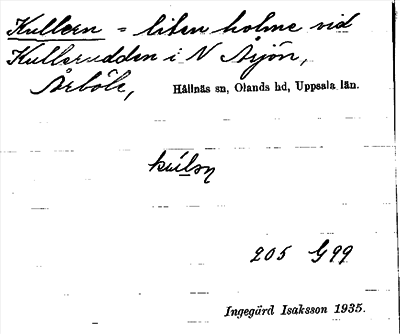 Kulleen = liten holme vid
Kullerudden i N Åsjön,
Årböle, Hållnäs sn, Olands hd, Uppsala län.
kúlsn
205 G99
Ingegärd Isaksson 1935.